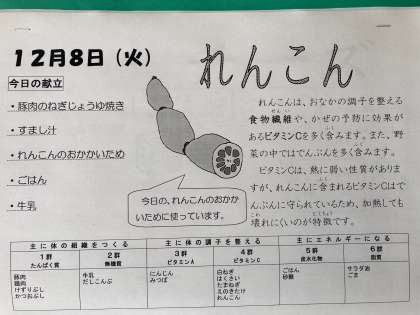 12月8日（火）
れんこん
今日の献立
・豚肉のねぎじょうゆ焼き
・すまし汁
・れんこんのおかかいため
・ごはん
・牛乳
れんこんは、おなかの調子を整える
食物繊維や、かぜの予防に効果が
あるビタミンCを多く含みます。また、野
菜の中ではでんぷんを多く含みます。
ビタミンCは、熱に弱い性質がありま
すが、れんこんに含まれるビタミンCはで
んぷんに守られているため、加熱しても
壊れにくいのが特徴です。
今日の、れんこんのおかか
いために使っています。
主に体の組織をつくる
主に体の調子を整える
主にエネルギーになる
1群
2群
3群
4群
5群
6群
たんぱく質
無機質
ビタミンA
ビタミンC
炭水化物
脂質
豚肉
鶏肉
けずりぶし
かつおぶし
牛乳
だしこんぶ
にんじん
みつば
白ねぎ
はくさい
たまねぎ
えのきたけ
れんこん
ごはん
砂糖
サラダ油
ごま